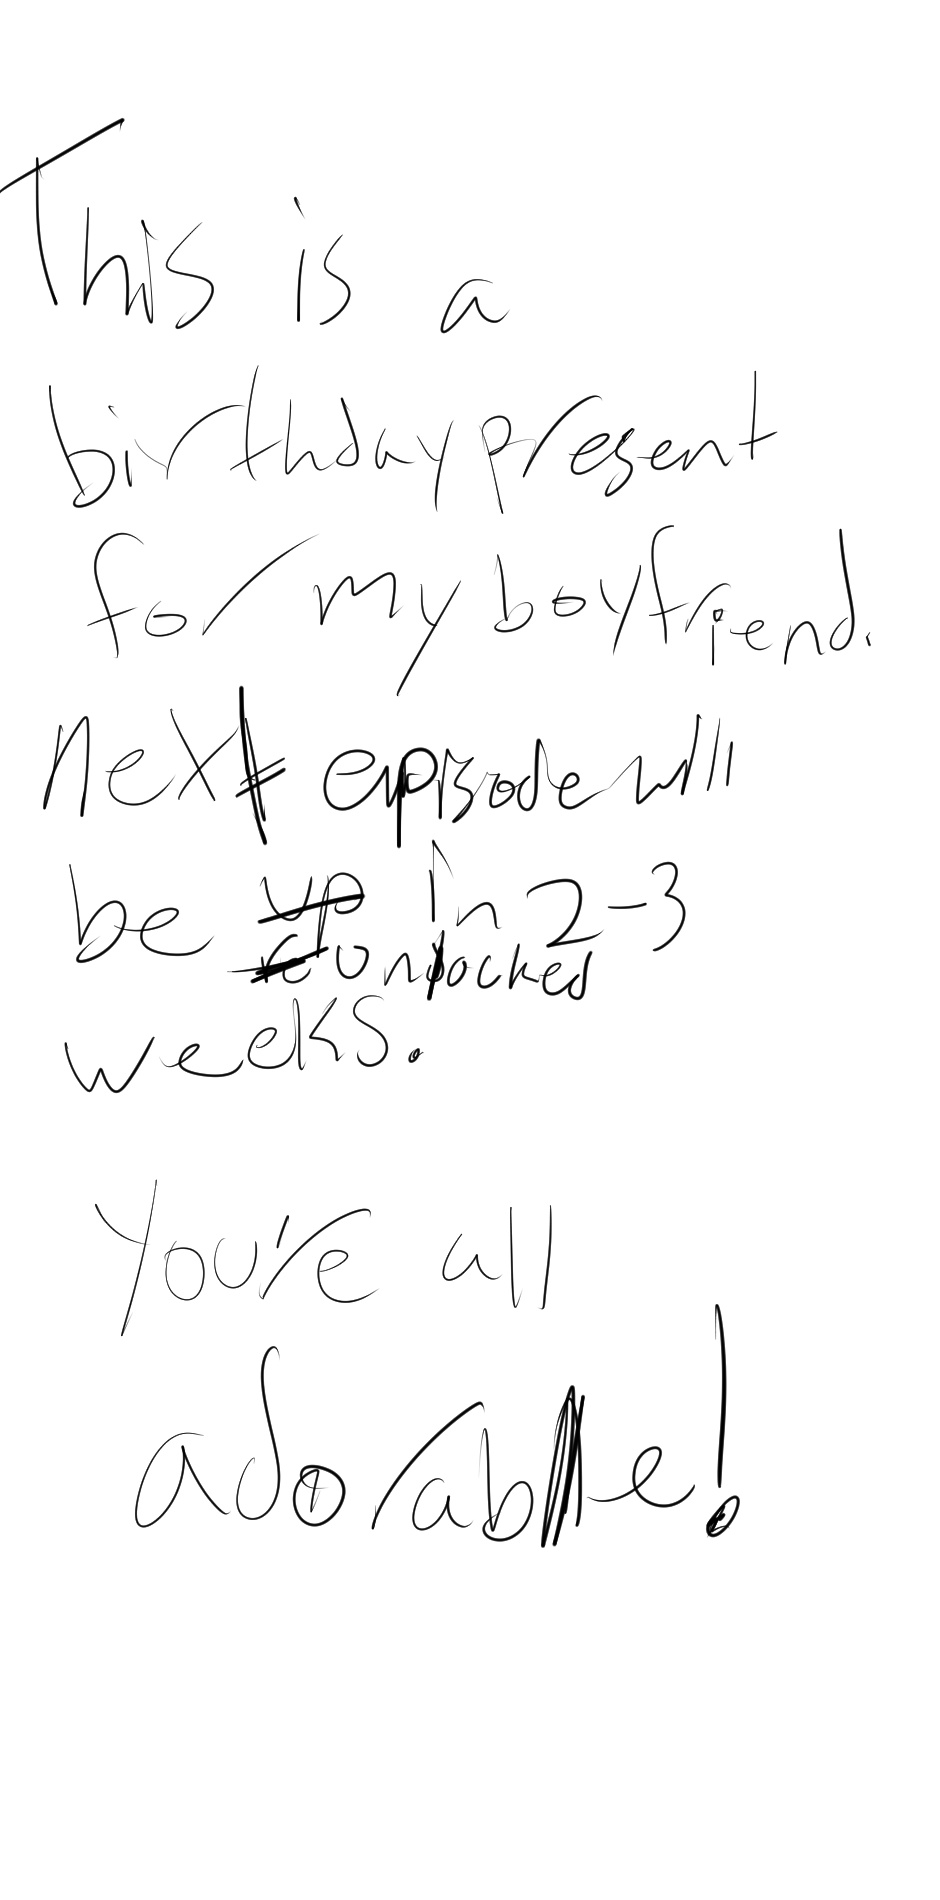 This is a
birthday present
for my boyfriend.
next episode will
be up in 2-3
re unlocked
weeks.
you're all
adorable!